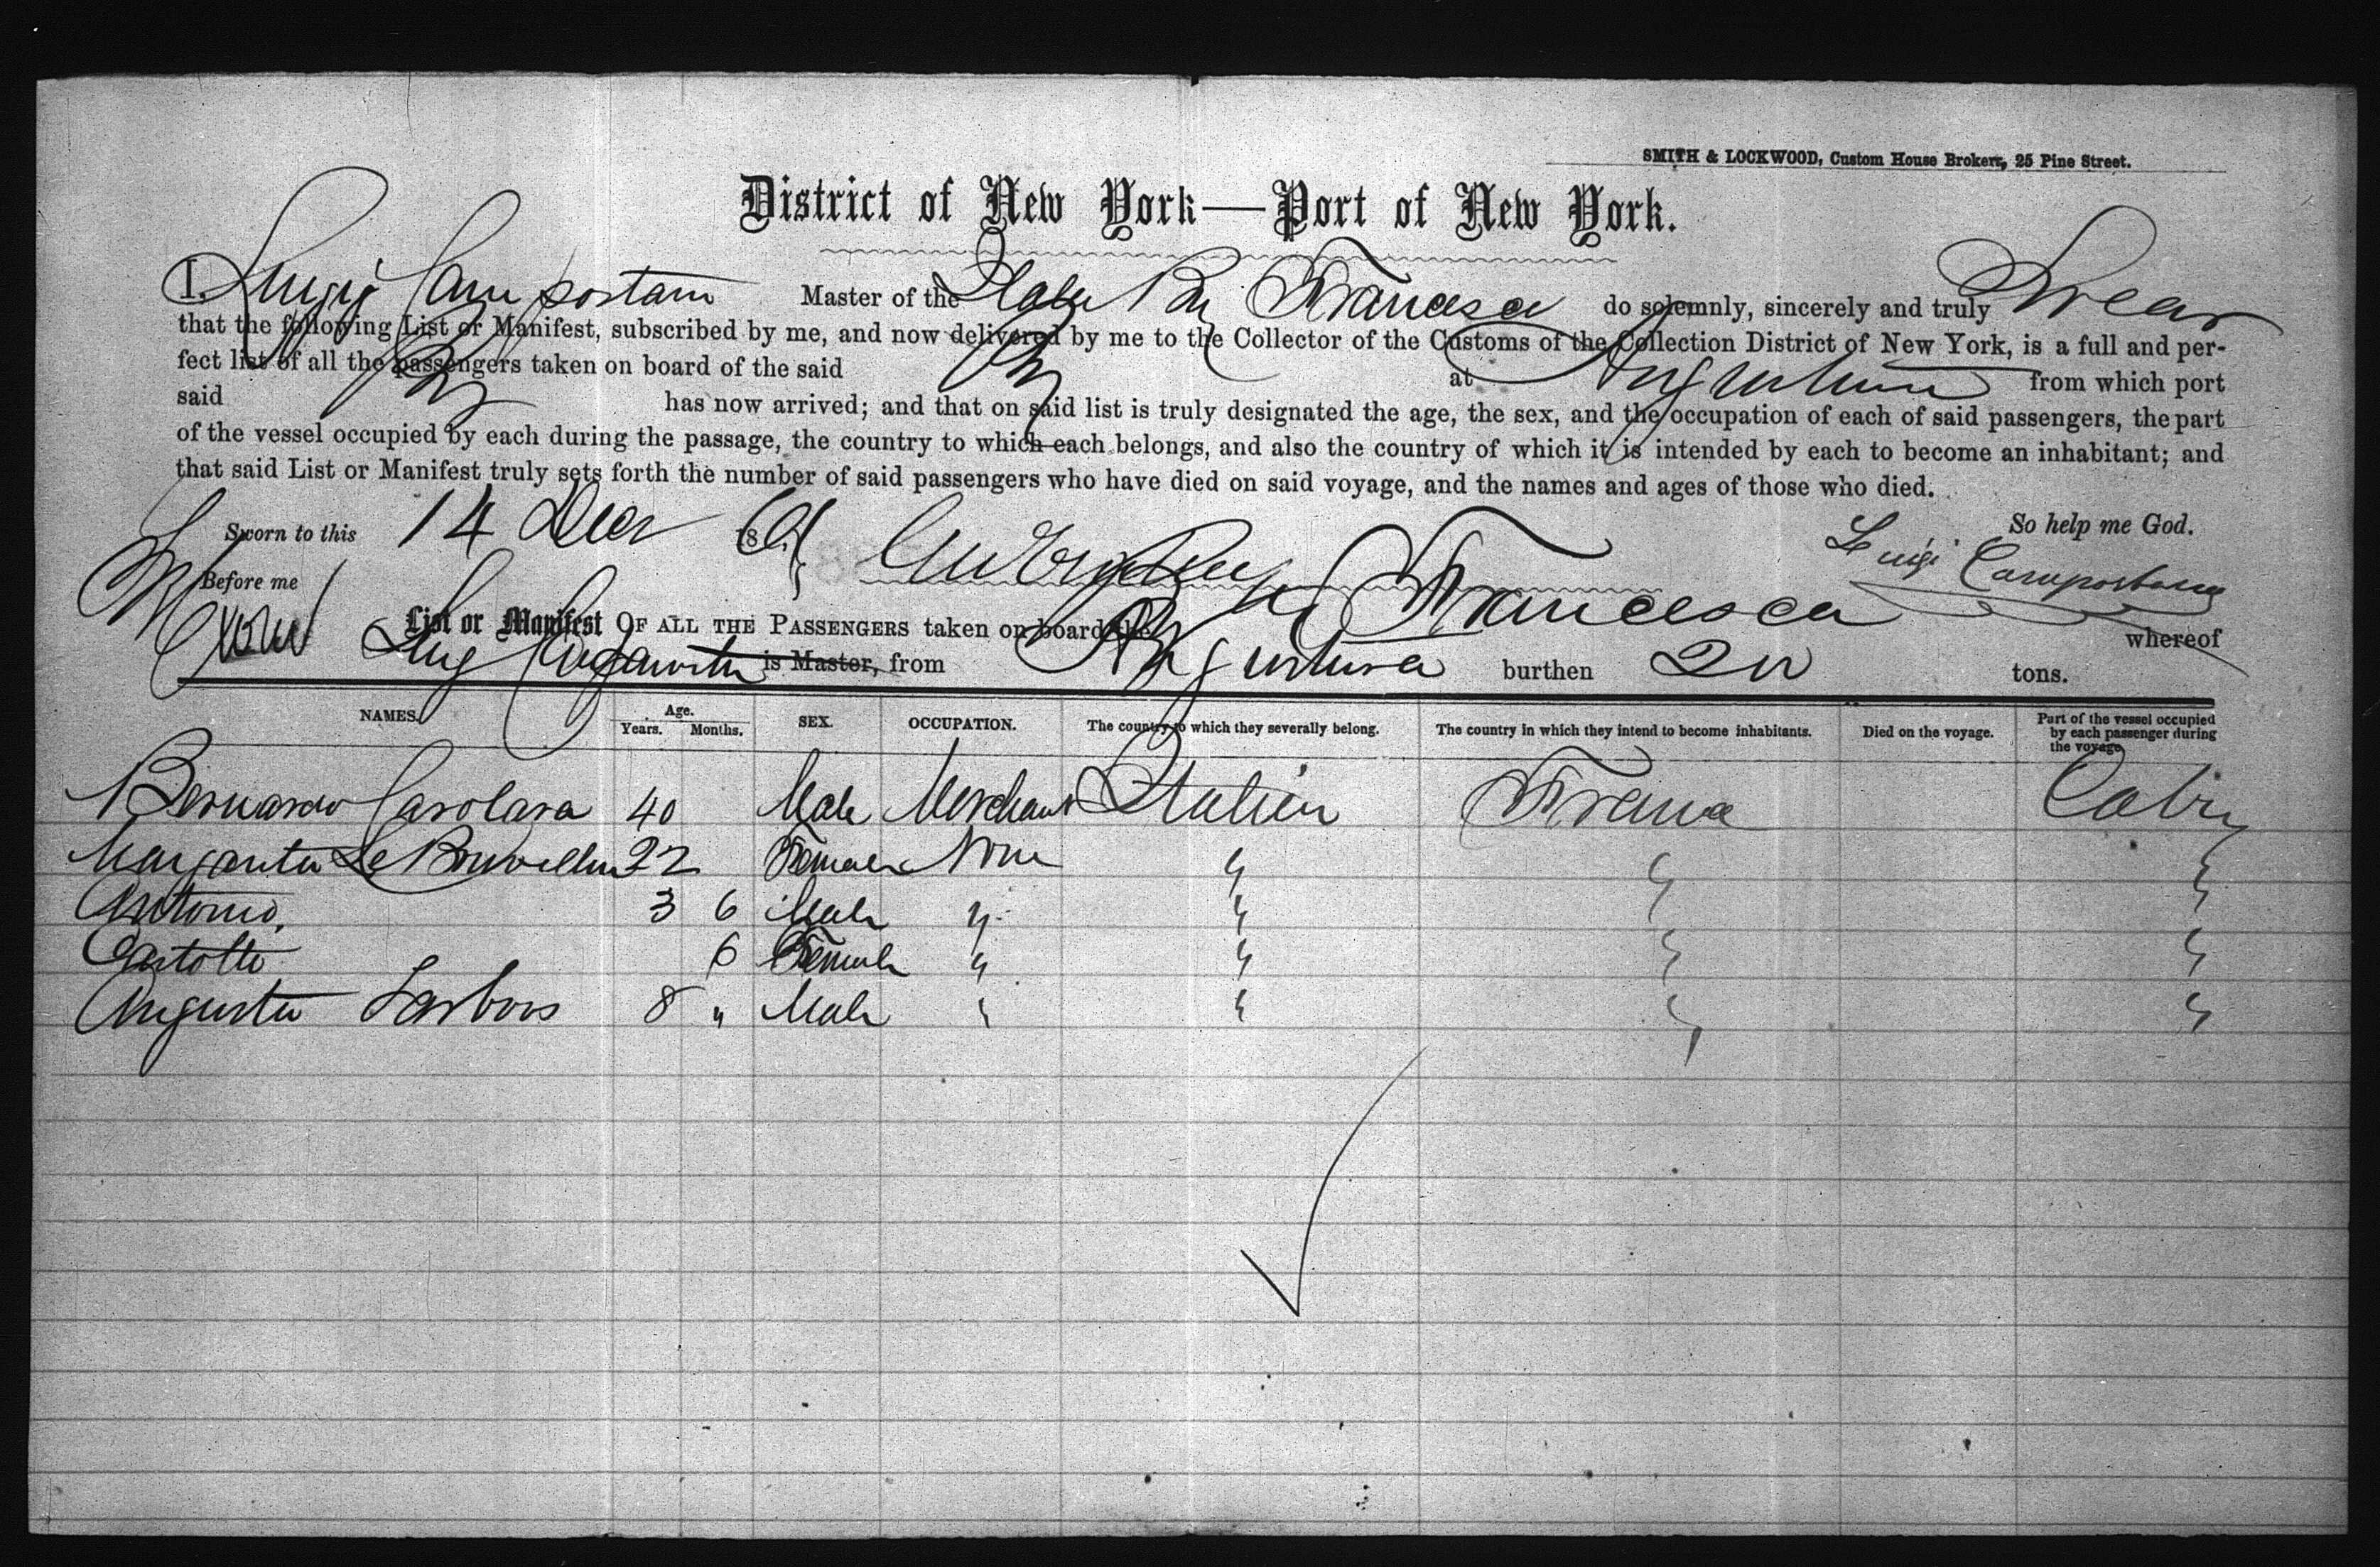 SMITH & LOCKWOOD, Custom House Brokers, 25 Pine Street.
District of New York—Port of New York.
I, Luigi Campostano Master of the Italian Brig Francesca do solemnly, sincerely and truly Swear
that the following List or Manifest, subscribed by me, and now delivered by me to the Collector of the Customs of the Collection District of New York, is a full and per-
fect list of all the passengers taken on board of the said Brig at Angostura from which port
said Brig has now arrived; and that on said list is truly designated the age, the sex, and the occupation of each of said passengers, the part
of the vessel occupied by each during the passage, the country to which each belongs, and also the country of which it is intended by each to become an inhabitant; and
that said List or Manifest truly sets forth the number of said passengers who have died on said voyage, and the names and ages of those who died.
Sworn to this 14 Decr 18 So help me God.
Before me Luigi Campostano
List or Manifest OF ALL THE PASSENGERS taken on board the Brig Francesca whereof
is Master, from Angostura burthen tons.
NAMES. Age. Years. Months. SEX. OCCUPATION. The country to which they severally belong. The country in which they intend to become inhabitants. Died on the voyage. Part of the vessel occupied by each passenger during the voyage
Bernardo Carolara 40 Male Merchant Italien France Cabin
Margarita 22 Female None " " "
Antonio. 3 6 Male " " " "
6 Female " " " "
Augusta 8 " Male " " " "